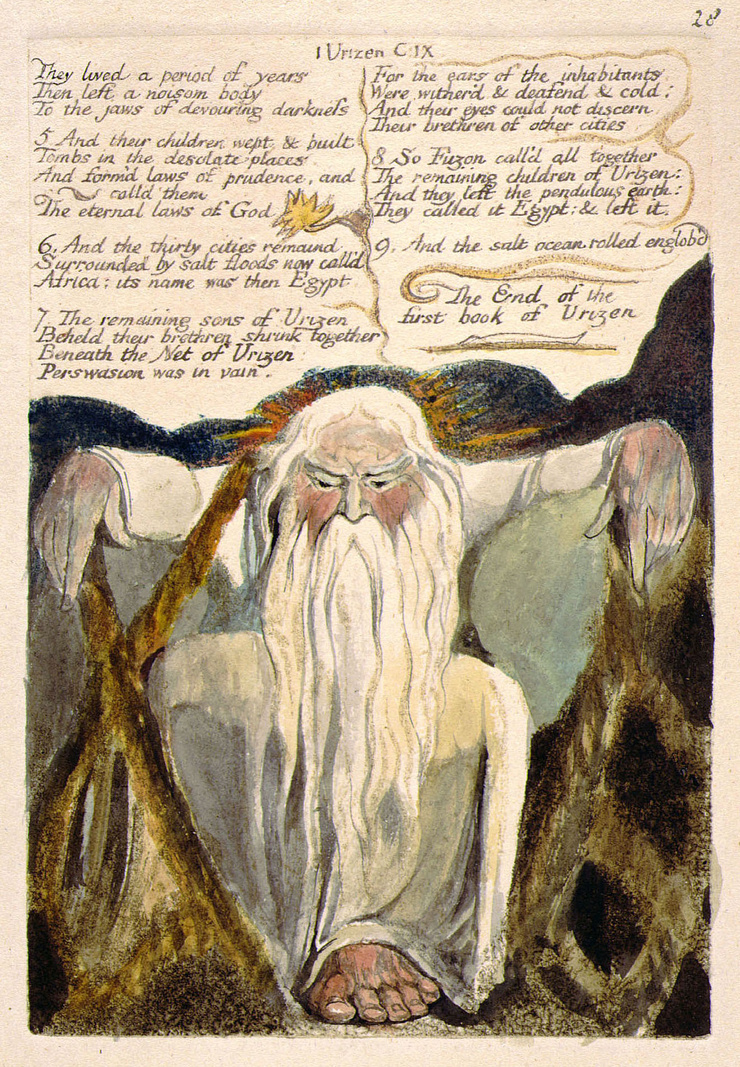 28
I Urizen C: IX
They lived a period of years
Then left a noisom body
To the jaws of devouring darkness
5. And their children wept, & built
Tombs in the desolate places,
And form'd laws of prudence, and
call'd them
The eternal laws of God
6. And the thirty cities remaind
Surrounded by salt floods now call'd
Africa: its name was then Egypt.
7. The remaining sons of Urizen
Beheld their brethren shrink together
Beneath the Net of Urizen:
Perswasion was in vain.
For the ears of the inhabitants,
Were wither'd & deafen'd & cold:
And their eyes could not discern,
Their brethren of other cities.
8. So Fuzon call'd all together
The remaining children of Urizen:
And they left the pendulous earth:
They called it Egypt; & left it.
9. And the salt ocean rolled englob'd
The End of the
first book of Urizen